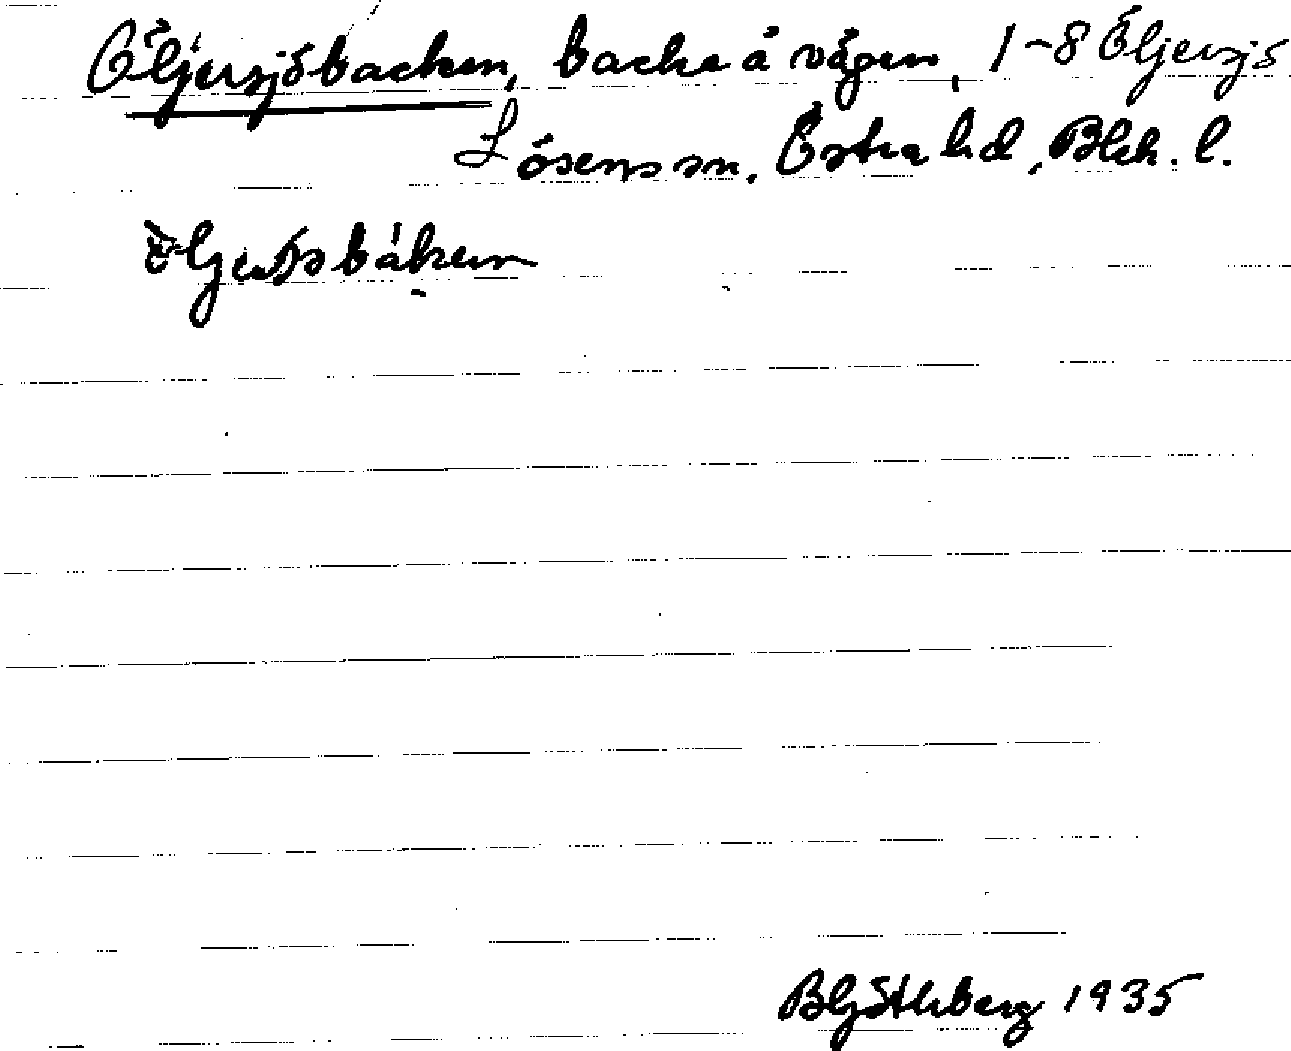 Öljersjöbacken, backe å vägen, 1-8 Öljersjö
Lösens sn. Östra hd, Blek. l.
BGöthberg 1935